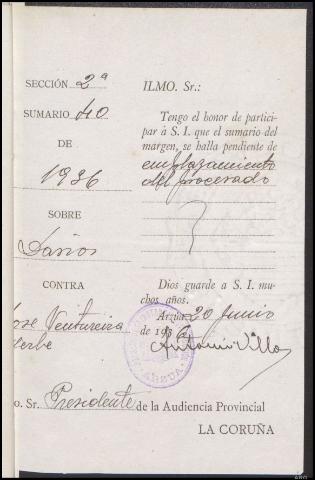 SECCIÓN 2ª
SUMARIO 40
DE
1936
SOBRE
Daños
CONTRA
José Ventureira
ILMO. Sr.:
Tengo el honor de partici-
par á S. I. que el sumario del
margen, se halla pendiente de
emplazamiento
del procesado
Dios guarde a S. I. mu-
chos años.
Arzúa 20 Junio
de 1936
Antonio Villa
o. Sr. Presidente de la Audiencia Provincial
LA CORUÑA